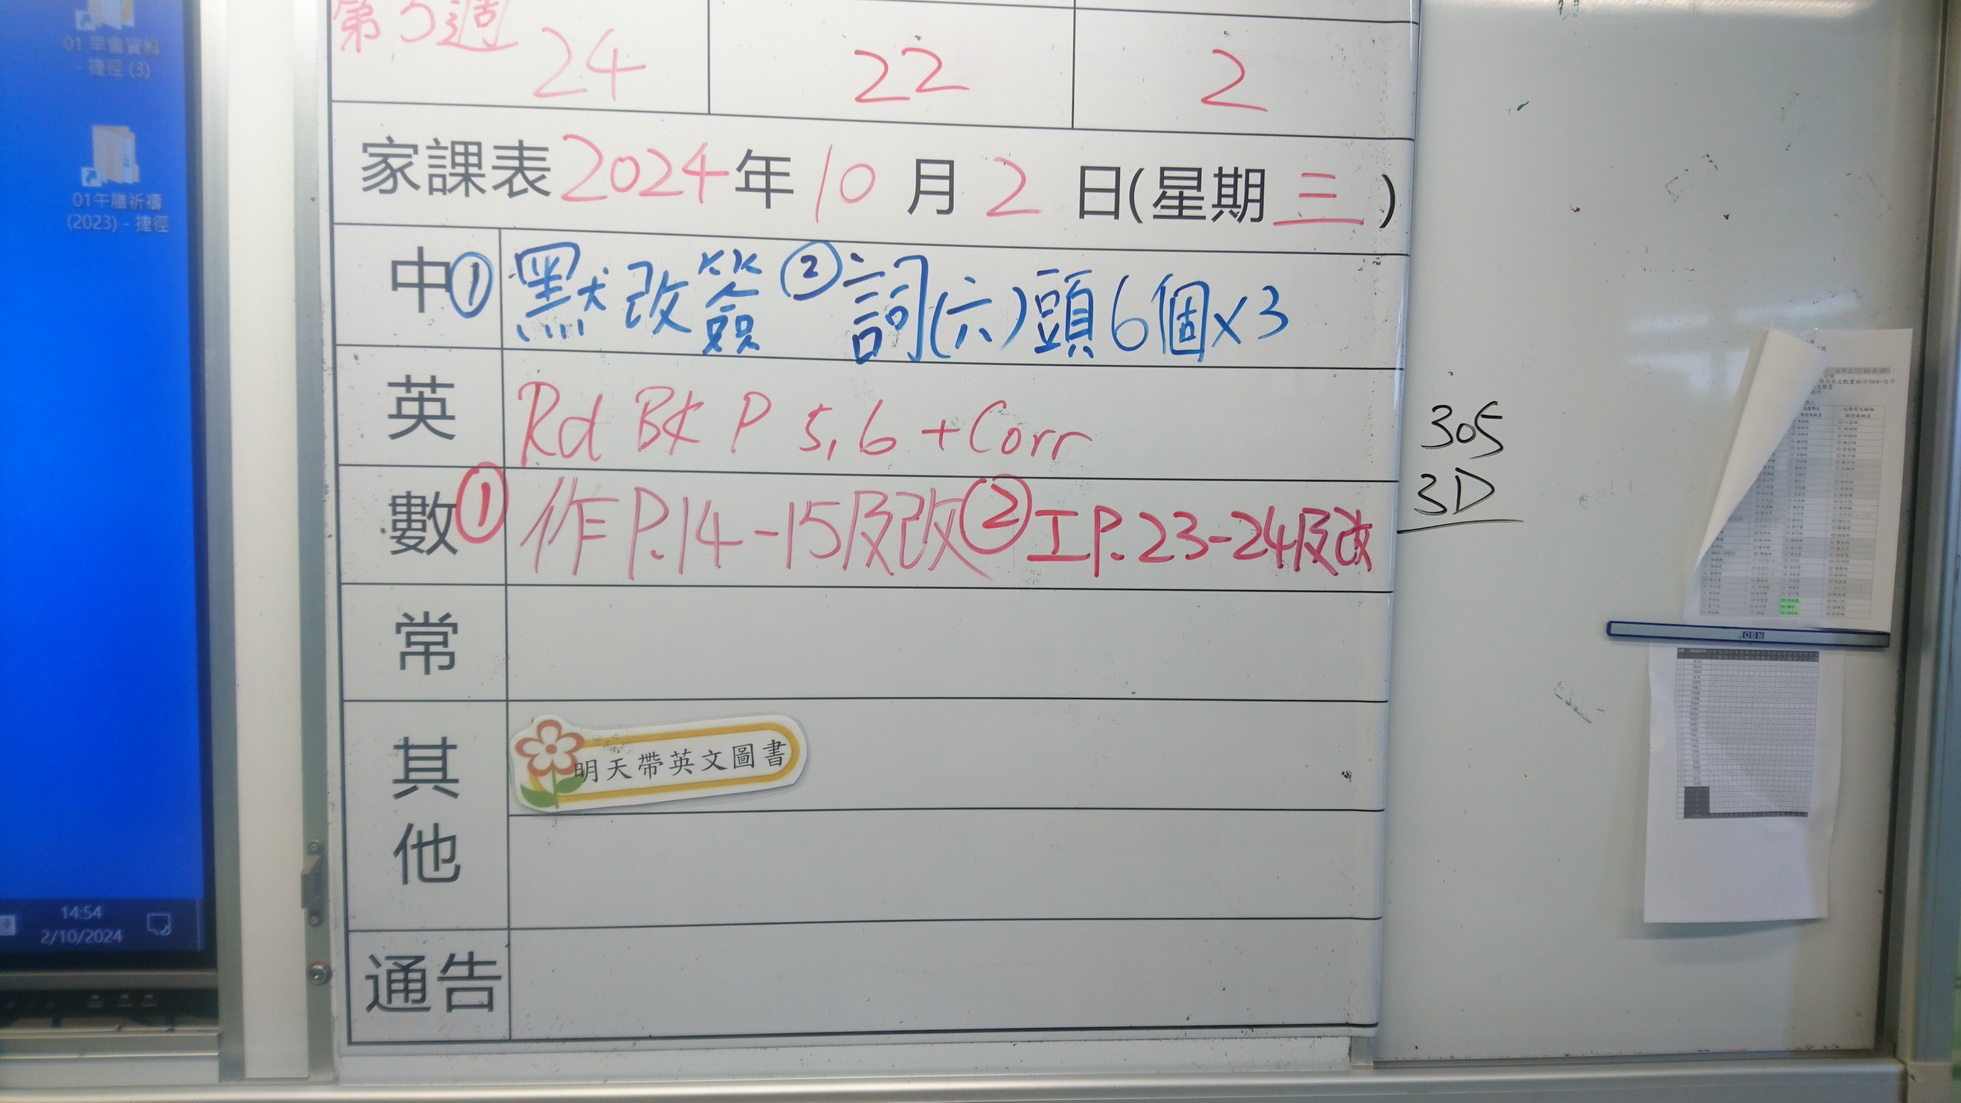 01 早會資料
- 捷徑 (3)
01午膳祈禱
(2023) - 捷徑
14:54
2/10/2024
第5週 24 22 2
家課表 2024年 10月 2日(星期三)
中 ① 默改簽 ② 詞(六)頭6個x3
英 Rd BK P 5,6 + Corr
數 ① 作 P.14-15及改 ② 工 P.23-24及改
常
其他
明天帶英文圖書
通告
305
3D